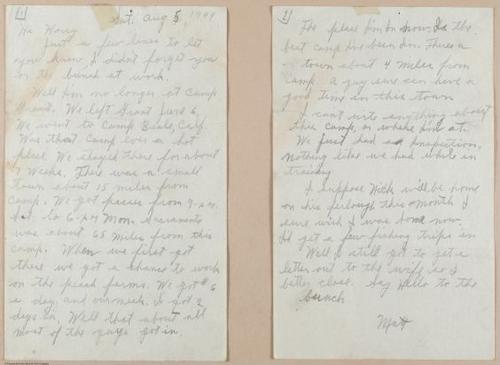 [1]
Sat, Aug 5, 1944
Hi Harry
Just a few lines to let
you know I didn't forget you
or the bunch at work.
Well I'm no longer at Camp
Grant. We left Grant June 6,
We went to Camp Beale, Calif.
Was that Camp ever a hot
place. We stayed there for about
7 Weeks. There was a small
town about 15 miles from
Camp. We got passes from 9 a.m.
Sat to 6 P.M Mon. Sacramento
was about 65 miles from this
camp. When we first got
there we got a chance to work
on the peach farms. We got $6
a day, and our meals. I got 2
days in. Well that about all
most of the guys got in.
[2]
The place I'm in now, Is the
best camp I've been in. There's a
town about 4 miles from
camp. A guy sure can have a
good time in this town
I can't write anything about
this camp, or where I'm at.
We just had an inspection,
Nothing like we had while in
training
I suppose Nick will be home
on his furlough this month. I
sure wish I was home now,
I'd get a few fishing trips in
Well I still got to get a
letter out to the wife so I
better close. Say Hello to the
bunch